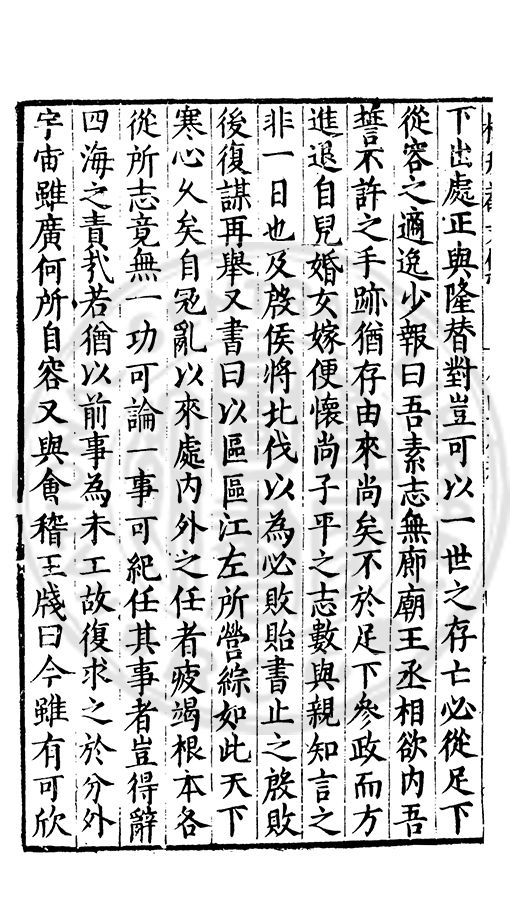 下出處正與隆替對豈可以一世之存亡必從足下
從容之適逸少報曰吾素志無廊廟王丞相欲内吾
誓不許之手跡猶存由來尚矣不於足下參政而方
進退自兒婚女嫁便懷尚子平之志數與親知言之
非一日也及殷侯將北伐以為必敗貽書止之殷敗
後復謀再舉又書曰以區區江左所營綜如此天下
寒心久矣自冦亂以來處内外之任者疲竭根本各
從所志竟無一功可論一事可紀任其事者豈得辭
四海之責㢤若猶以前事為未工故復求之於分外
宇宙雖廣何所自容又與會稽王牋曰今雖有可欣